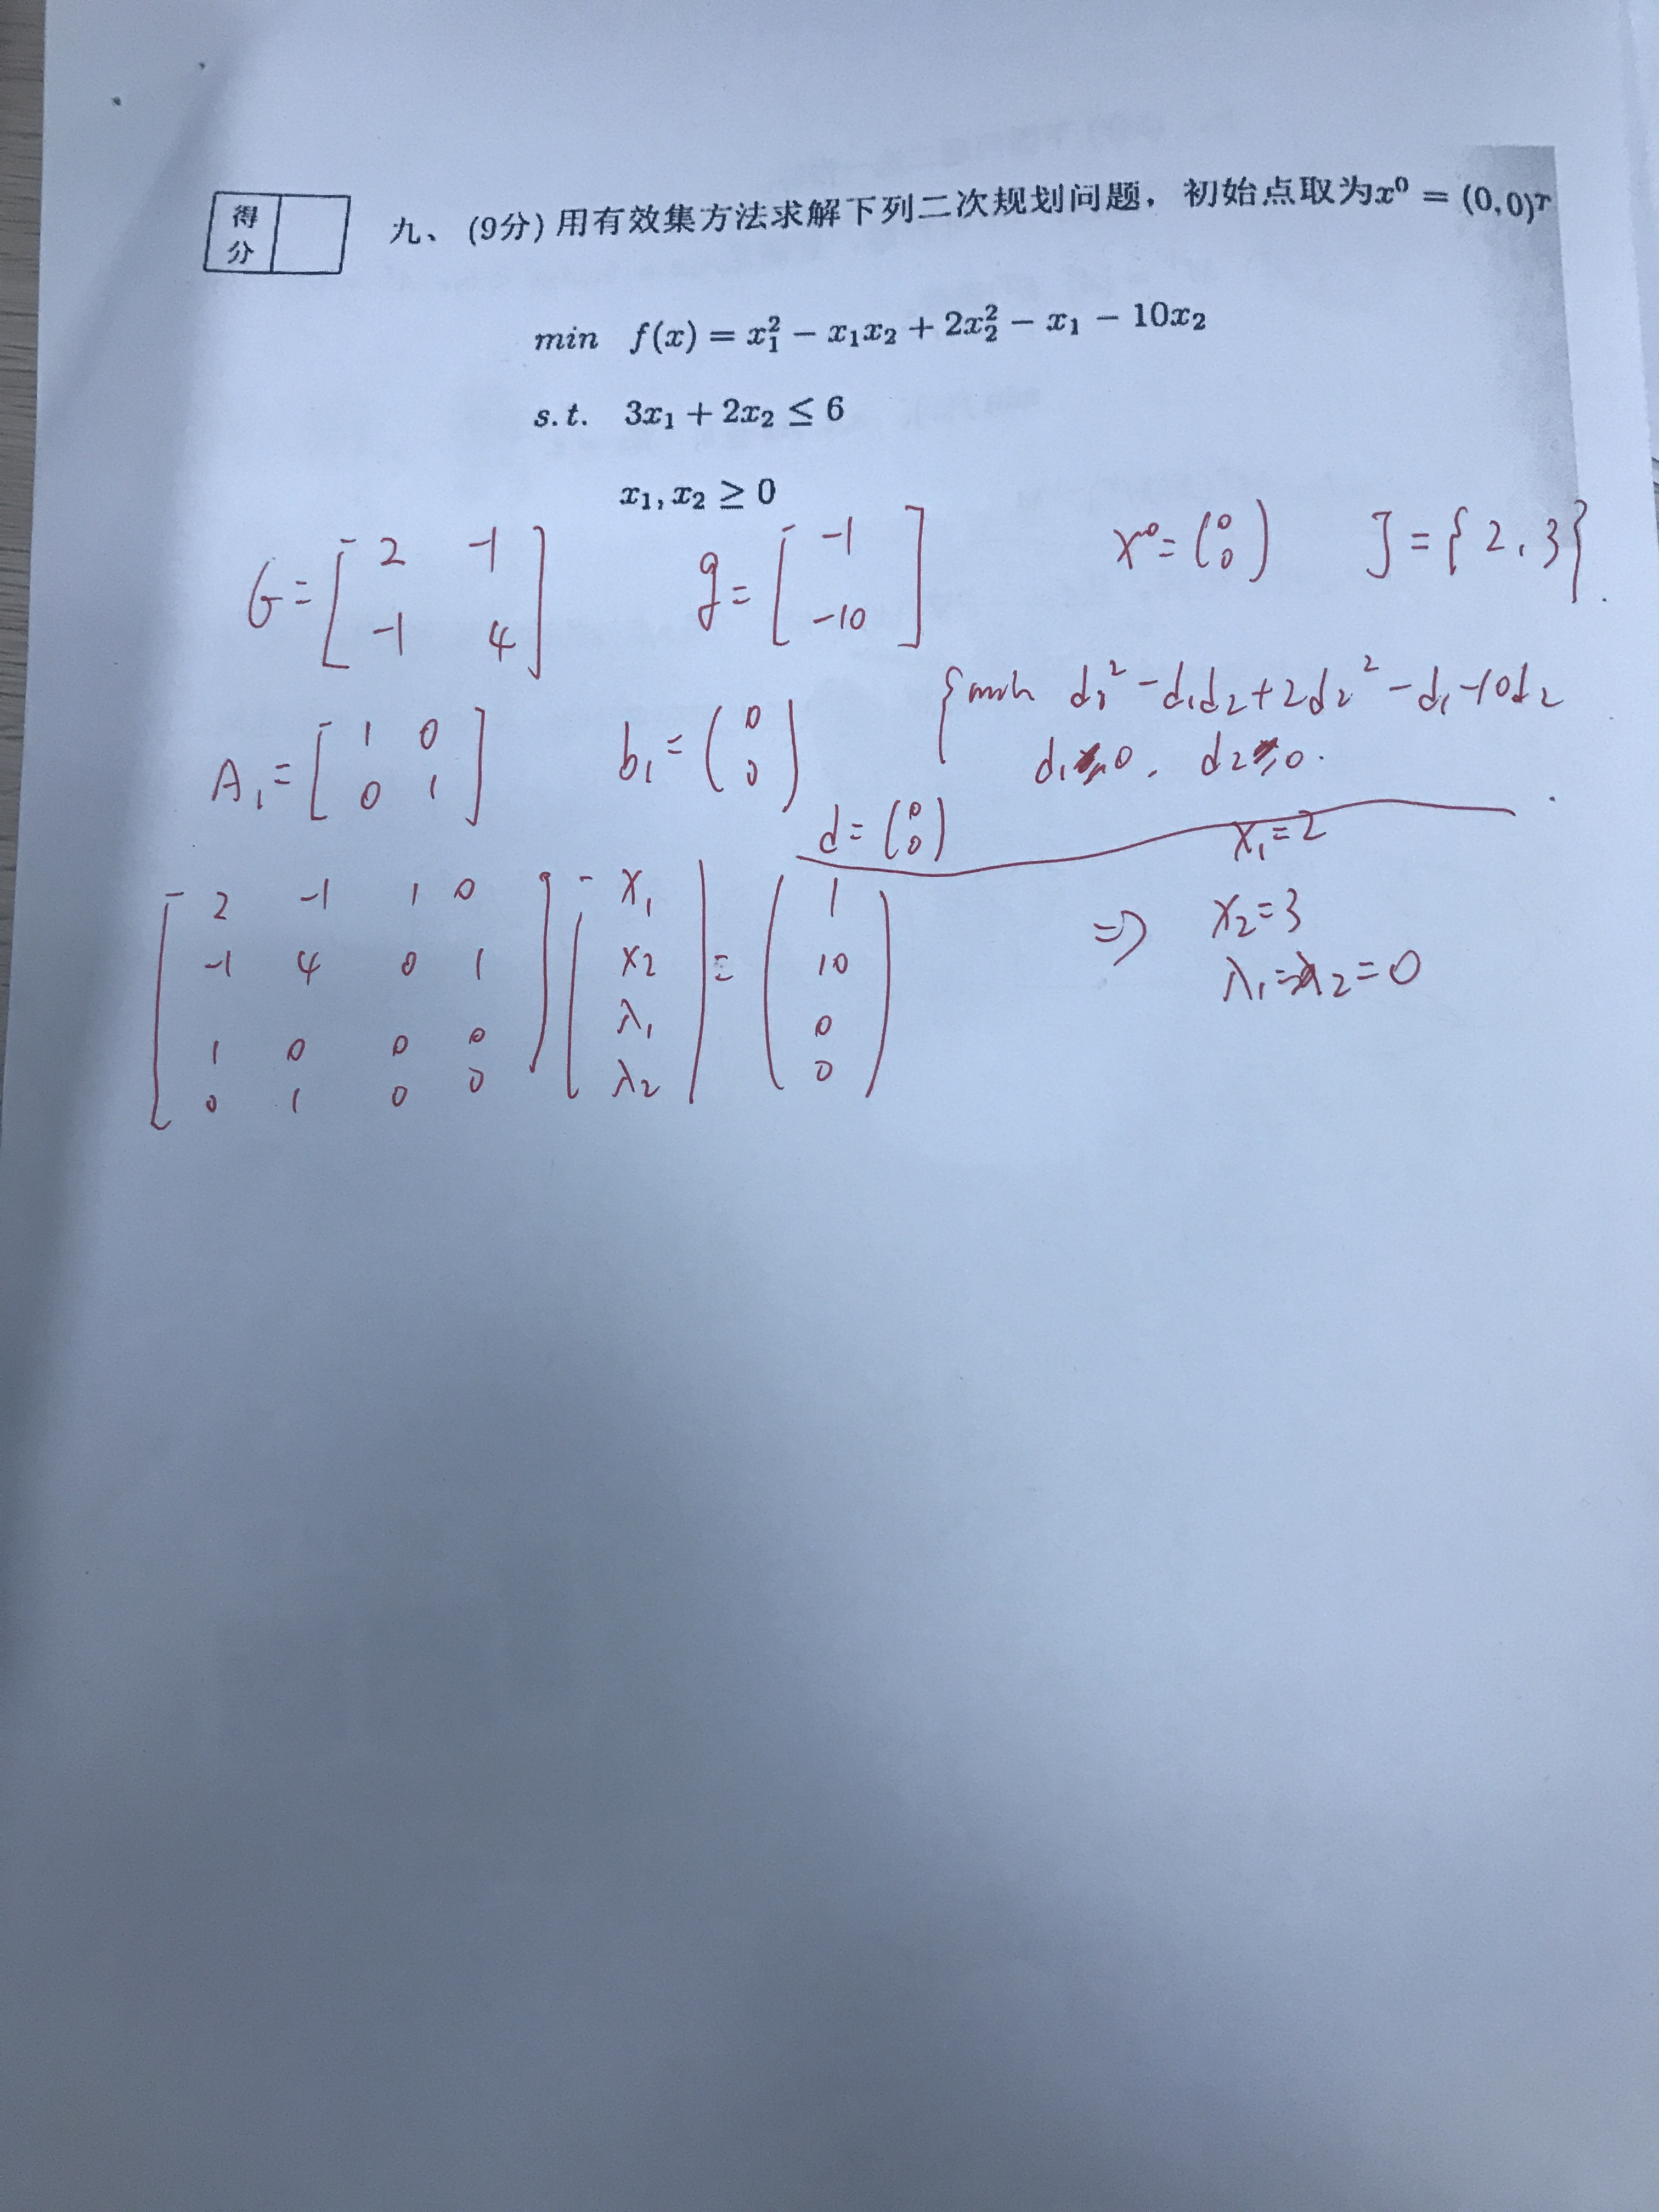 得分
九、(9分) 用有效集方法求解下列二次规划问题, 初始点取为x⁰ = (0,0)ᵀ
min f(x) = x₁² − x₁x₂ + 2x₂² − x₁ − 10x₂
s.t. 3x₁ + 2x₂ ≤ 6
x₁, x₂ ≥ 0
G = [2 -1; -1 4] g = [-1; -10] x⁰ = (0; 0) J = {2, 3}.
A₁ = [1 0; 0 1] b₁ = (0; 0) { min d₁² - d₁d₂ + 2d₂² - d₁ - 10d₂
d₁ = 0, d₂ = 0.
d = (0; 0)
[2 -1 1 0; -1 4 0 1; 1 0 0 0; 0 1 0 0] [x₁; x₂; λ₁; λ₂] = (1; 10; 0; 0) ⇒ x₁=2
x₂=3
λ₁=λ₂=0